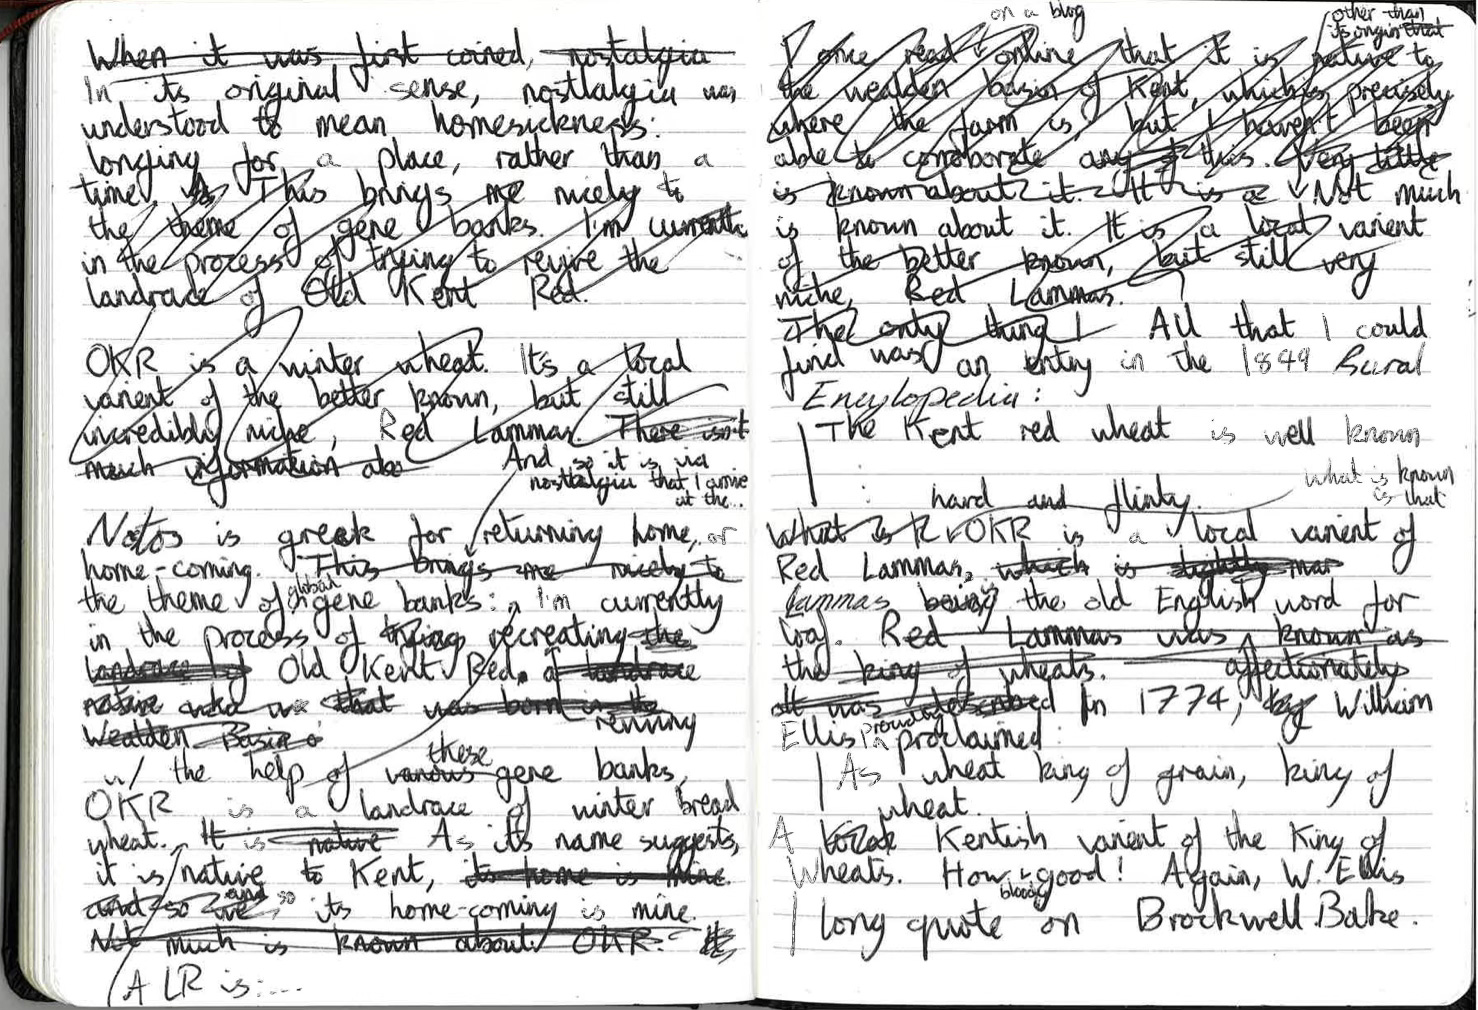 When it was first coined, nostalgia
In its original sense, nostlalgia was
understood to mean homesickness:
longing for a place, rather than a
time. As This brings me nicely to
the theme of gene banks. I'm currently
in the process of trying to revive the
landrace of Old Kent Red.
OKR is a winter wheat. It's a local
varient of the better known, but still
incredibly niche, Red Lammas. There isn't
much information abo
And so it is via
nostalgia that I arrive
at the...
Notos is greek for returning home, or
home-coming. This brings me nicely to
global
the theme of gene banks: I'm currently
in the process of trying recreating the
landrace of Old Kent Red, a landrace
native that was born in the
Wealden Basin
reviving
w/ the help of various gene banks,
these
OKR is a landrace of winter bread
wheat. It is native As its name suggests,
it is native to Kent, its home is mine.
and so we, and so its home-coming is mine.
Not much is known about OKR.
A LR is:...
on a blog
other than
its origin that
I once read online that it is native to
the wealden basin of Kent, which is precisely
where the farm is, but I haven't been
able to corroborate any of this. Very little
is known about it. It is a Not much
is known about it. It is a local varient
of the better known, but still very
niche, Red Lammas.
The only thing I All that I could
find was an entry in the 1849 Rural
Encylopedia:
The Kent red wheat is well known
what is known
is that
: hard and flinty.
What is OKR is a local varient of
Red Lammas, which is slightly mar
Lammas being the old English word for
loaf. Red Lammas was known as
the king of wheats. affectionately
It was described In 1774, by William
Ellis proudly proclaimed:
As wheat king of grain, king of
wheat.
A local Kentish varient of the King of
Wheats. How good! Again, W. Ellis
bloody
long quote on Brockwell Bake.